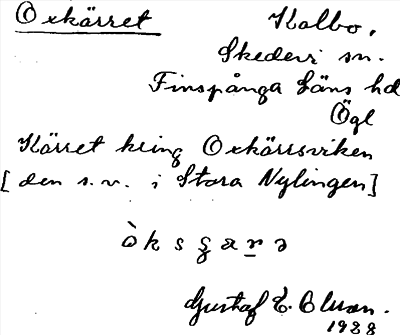 Oxkärret
Kalbo,
Skedevi sn.
Finspånga läns hd
Ögl
Kärret kring Oxkärrsviken
[den s.v. i Stora Nylingen]
Gustaf
1928